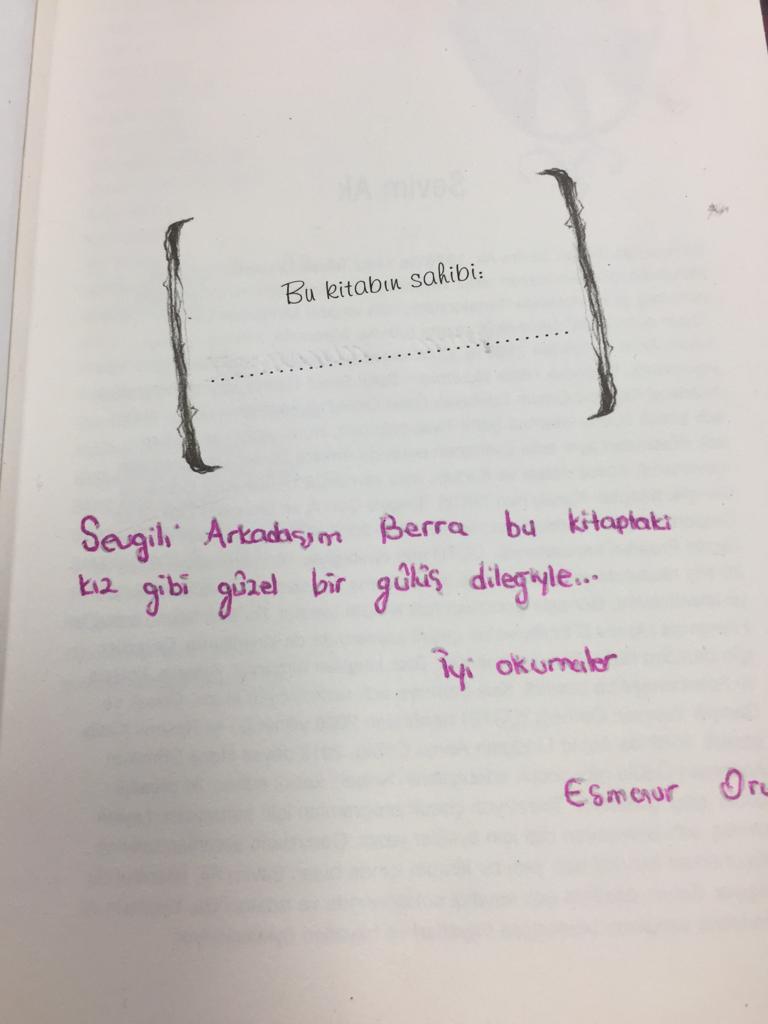 Bu kitabın sahibi:
Sevgili Arkadaşım Berra bu kitaptaki
kız gibi güzel bir gülüş dileğiyle...
İyi okumalar
Esmanur